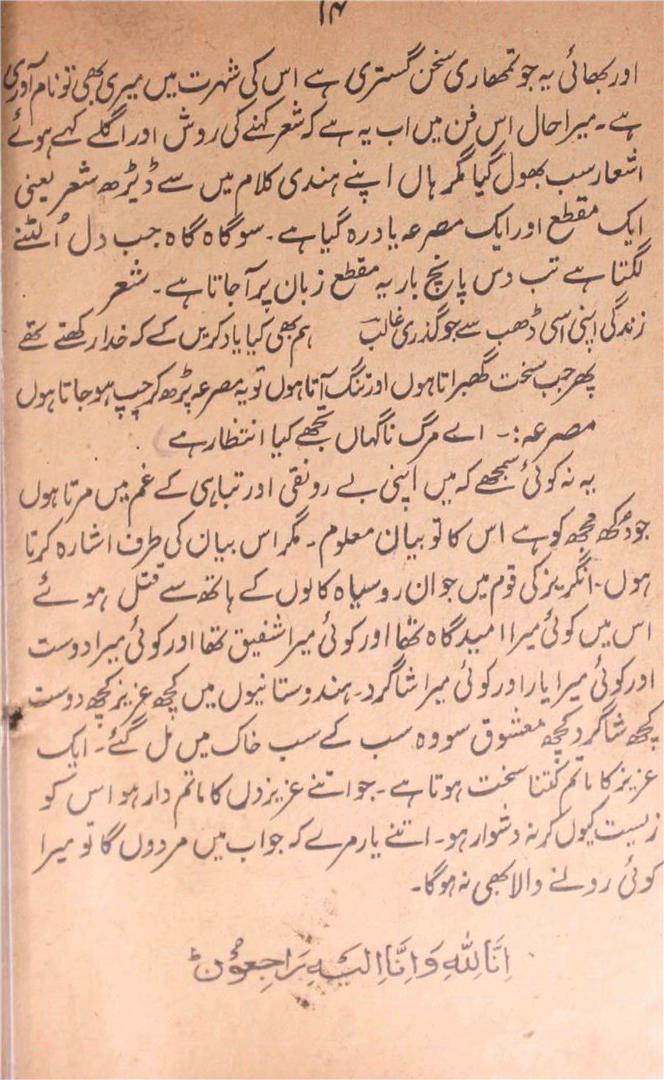 ۱۴
اور بھائی یہ جو تمھاری سخن گستری ہے اس کی شہرت میں میری بھی تو نام آوری
ہے۔ میرا حال اس فن میں اب یہ ہے کہ شعر کہنے کی روش اور اگلے کہے ہوئے
اشعار سب بھول گیا مگر ہاں اپنے ہندی کلام میں سے ڈیڑھ شعر یعنی
ایک مقطع اور ایک مصرعہ یاد رہ گیا ہے۔ سو گاہ گاہ جب دل اُلٹنے
لگتا ہے تب دس پانچ بار یہ مقطع زبان پر آجاتا ہے۔ شعر
زندگی اپنی اسی ڈھب سے جو گذری غالبؔ ہم بھی کیا یاد کریں گے کہ خدا رکھتے تھے
پھر جب سخت گھبراتا ہوں اور تنگ آتا ہوں تو یہ مصرعہ پڑھ کر چپ ہو جاتا ہوں
مصرعہ:۔ اے مرگ ناگہاں تجھے کیا انتظار ہے
یہ نہ کوئی سمجھے کہ میں اپنی بے رونقی اور تباہی کے غم میں مرتا ہوں
جو دُکھ مجھ کو ہے اس کا تو بیان معلوم۔ مگر اس بیان کی طرف اشارہ کرتا
ہوں۔ انگریز کی قوم میں جو ان روسیاہ کالوں کے ہاتھ سے قتل ہوئے
اس میں کوئی میرا امید گاہ تھا اور کوئی میرا شفیق تھا اور کوئی میرا دوست
اور کوئی میرا یار اور کوئی میرا شاگرد۔ ہندوستانیوں میں کچھ عزیز کچھ دوست
کچھ شاگرد کچھ معشوق سو وہ سب کے سب خاک میں مل گئے۔ ایک
عزیز کا ماتم کتنا سخت ہوتا ہے۔ جو اتنے عزیزوں کا ماتم دار ہو اس کو
زیست کیوں کر نہ دشوار ہو۔ اتنے یار مرے کہ جو اب میں مردوں گا تو میرا
کوئی رونے والا بھی نہ ہوگا۔
اِنَّا لِلّٰہِ وَاِنَّا اِلَیْہِ رَاجِعُوْنَ ط